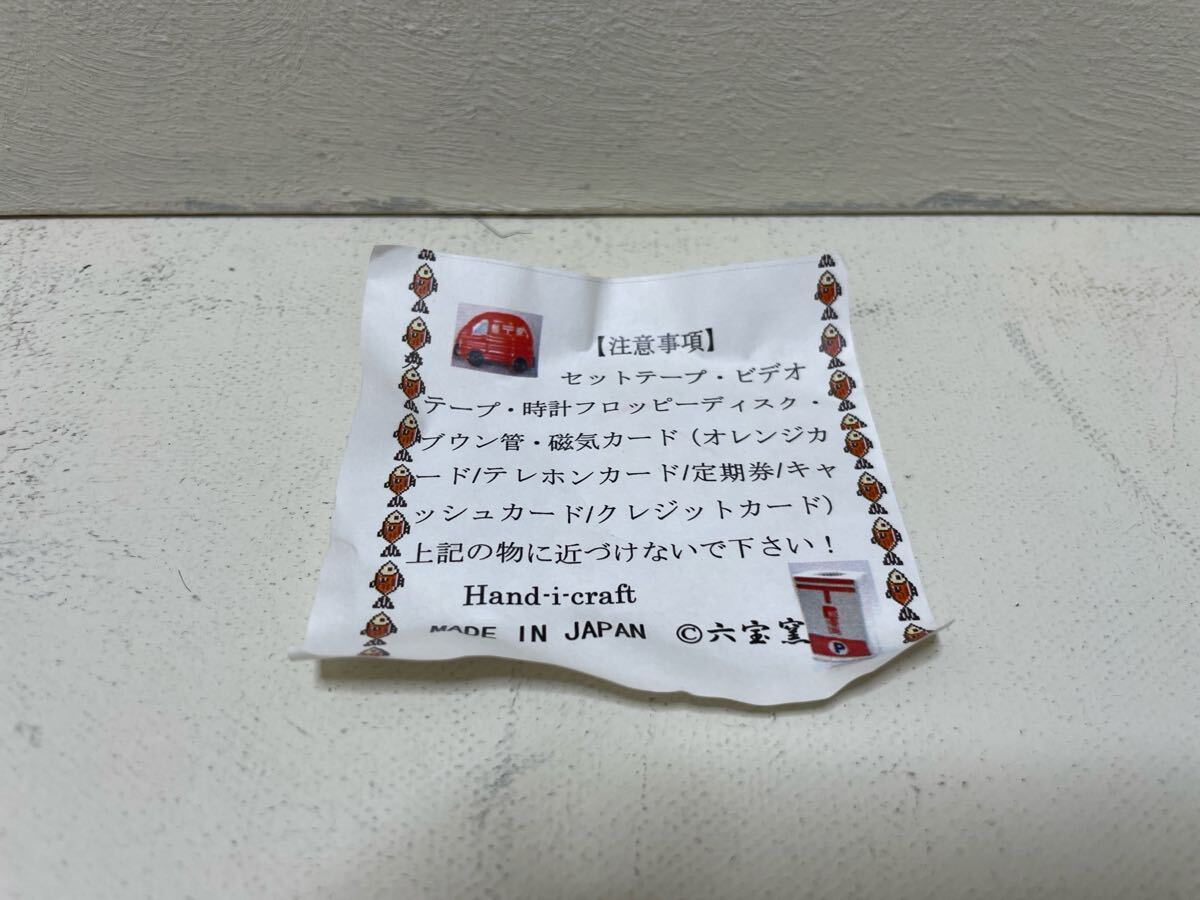 【注意事項】
セットテープ・ビデオ
テープ・時計フロッピーディスク・
ブウン管・磁気カード（オレンジカ
ード/テレホンカード/定期券/キャ
ッシュカード/クレジットカード）
上記の物に近づけないで下さい！
Hand-i-craft
MADE IN JAPAN ©六宝窯
P